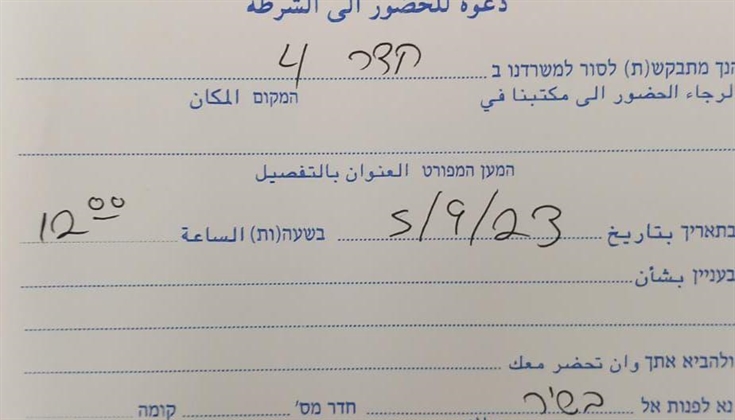 دعوة للحضور الى الشرطة
הנך מתבקש(ת) לסור למשרדנו ב קדר 4
الرجاء الحضور الى مكتبنا في המקום المكان
המען המפורט العنوان بالتفصيل
בתאריך بتاريخ 5/9/23 בשעה(ות) الساعة 12⁰⁰
בעניין بشأن
ולהביא אתך وان تحضر معك
נא לפנות אל בשיר חדר מס' קומה